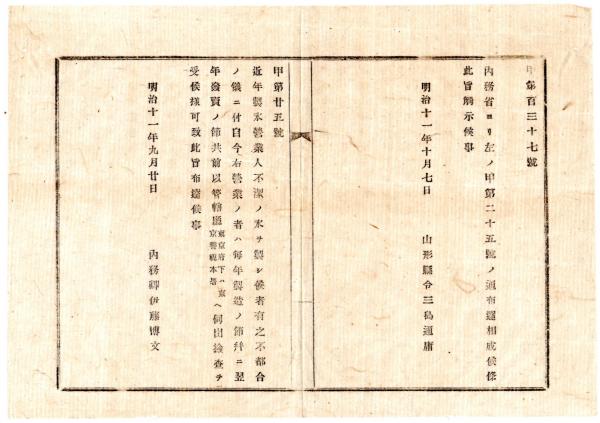 甲第百三十七號
内務省ヨリ左ノ甲第二十五號ノ通布達相成候條
此旨觸示候事
明治十一年十月七日
山形縣令三島通庸
甲第廿五號
近年製氷營業人不潔ノ氷ヲ製シ候者有之不都合
ノ儀ニ付自今右營業ノ者ハ毎年製造ノ節幷ニ翌
年發賣ノ節共前以管轄廳東京府下ハ東京警視本署ヘ伺出檢査ヲ
受候樣可致此旨布達候事
明治十一年九月廿日
内務卿伊藤博文